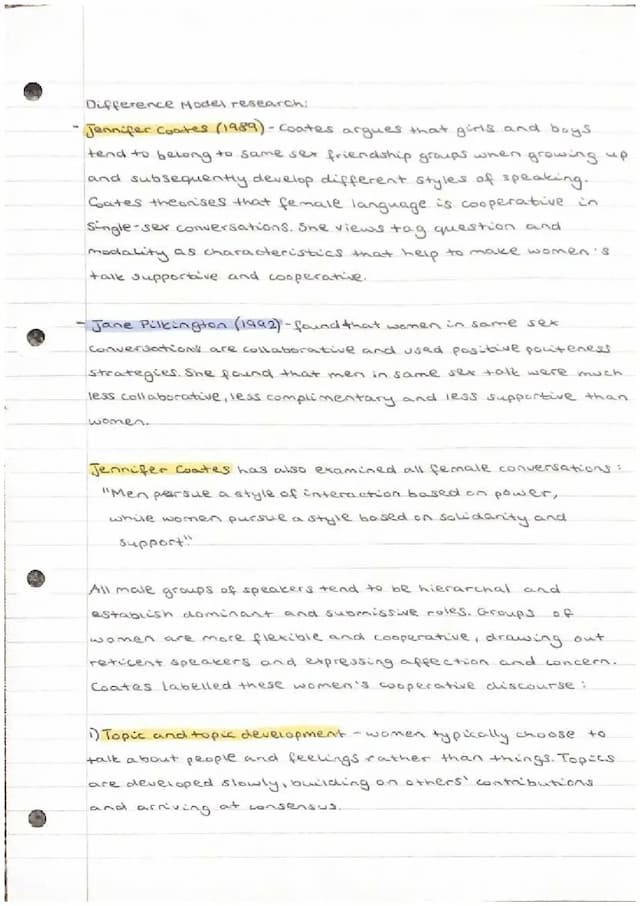 Difference Model research:
- Jennifer Coates (1989) - Coates argues that girls and boys
tend to belong to same sex friendship groups when growing up
and subsequently develop different styles of speaking.
Coates theorises that female language is cooperative in
single-sex conversations. She views tag question and
modality as characteristics that help to make women's
talk supportive and cooperative.
- Jane Pilkington (1992) - found that women in same sex
conversations are collaborative and used positive politeness
strategies. She found that men in same sex talk were much
less collaborative, less complimentary and less supportive than
women.
Jennifer Coates has also examined all female conversations:
"Men persue a style of interaction based on power,
while women pursue a style based on solidarity and
support."
All male groups of speakers tend to be hierarchal and
establish dominant and submissive roles. Groups of
women are more flexible and cooperative, drawing out
reticent speakers and expressing affection and concern.
Coates labelled these women's cooperative discourse:
i) Topic and topic development - women typically choose to
talk about people and feelings rather than things. Topics
are developed slowly, building on others' contributions
and arriving at consensus.